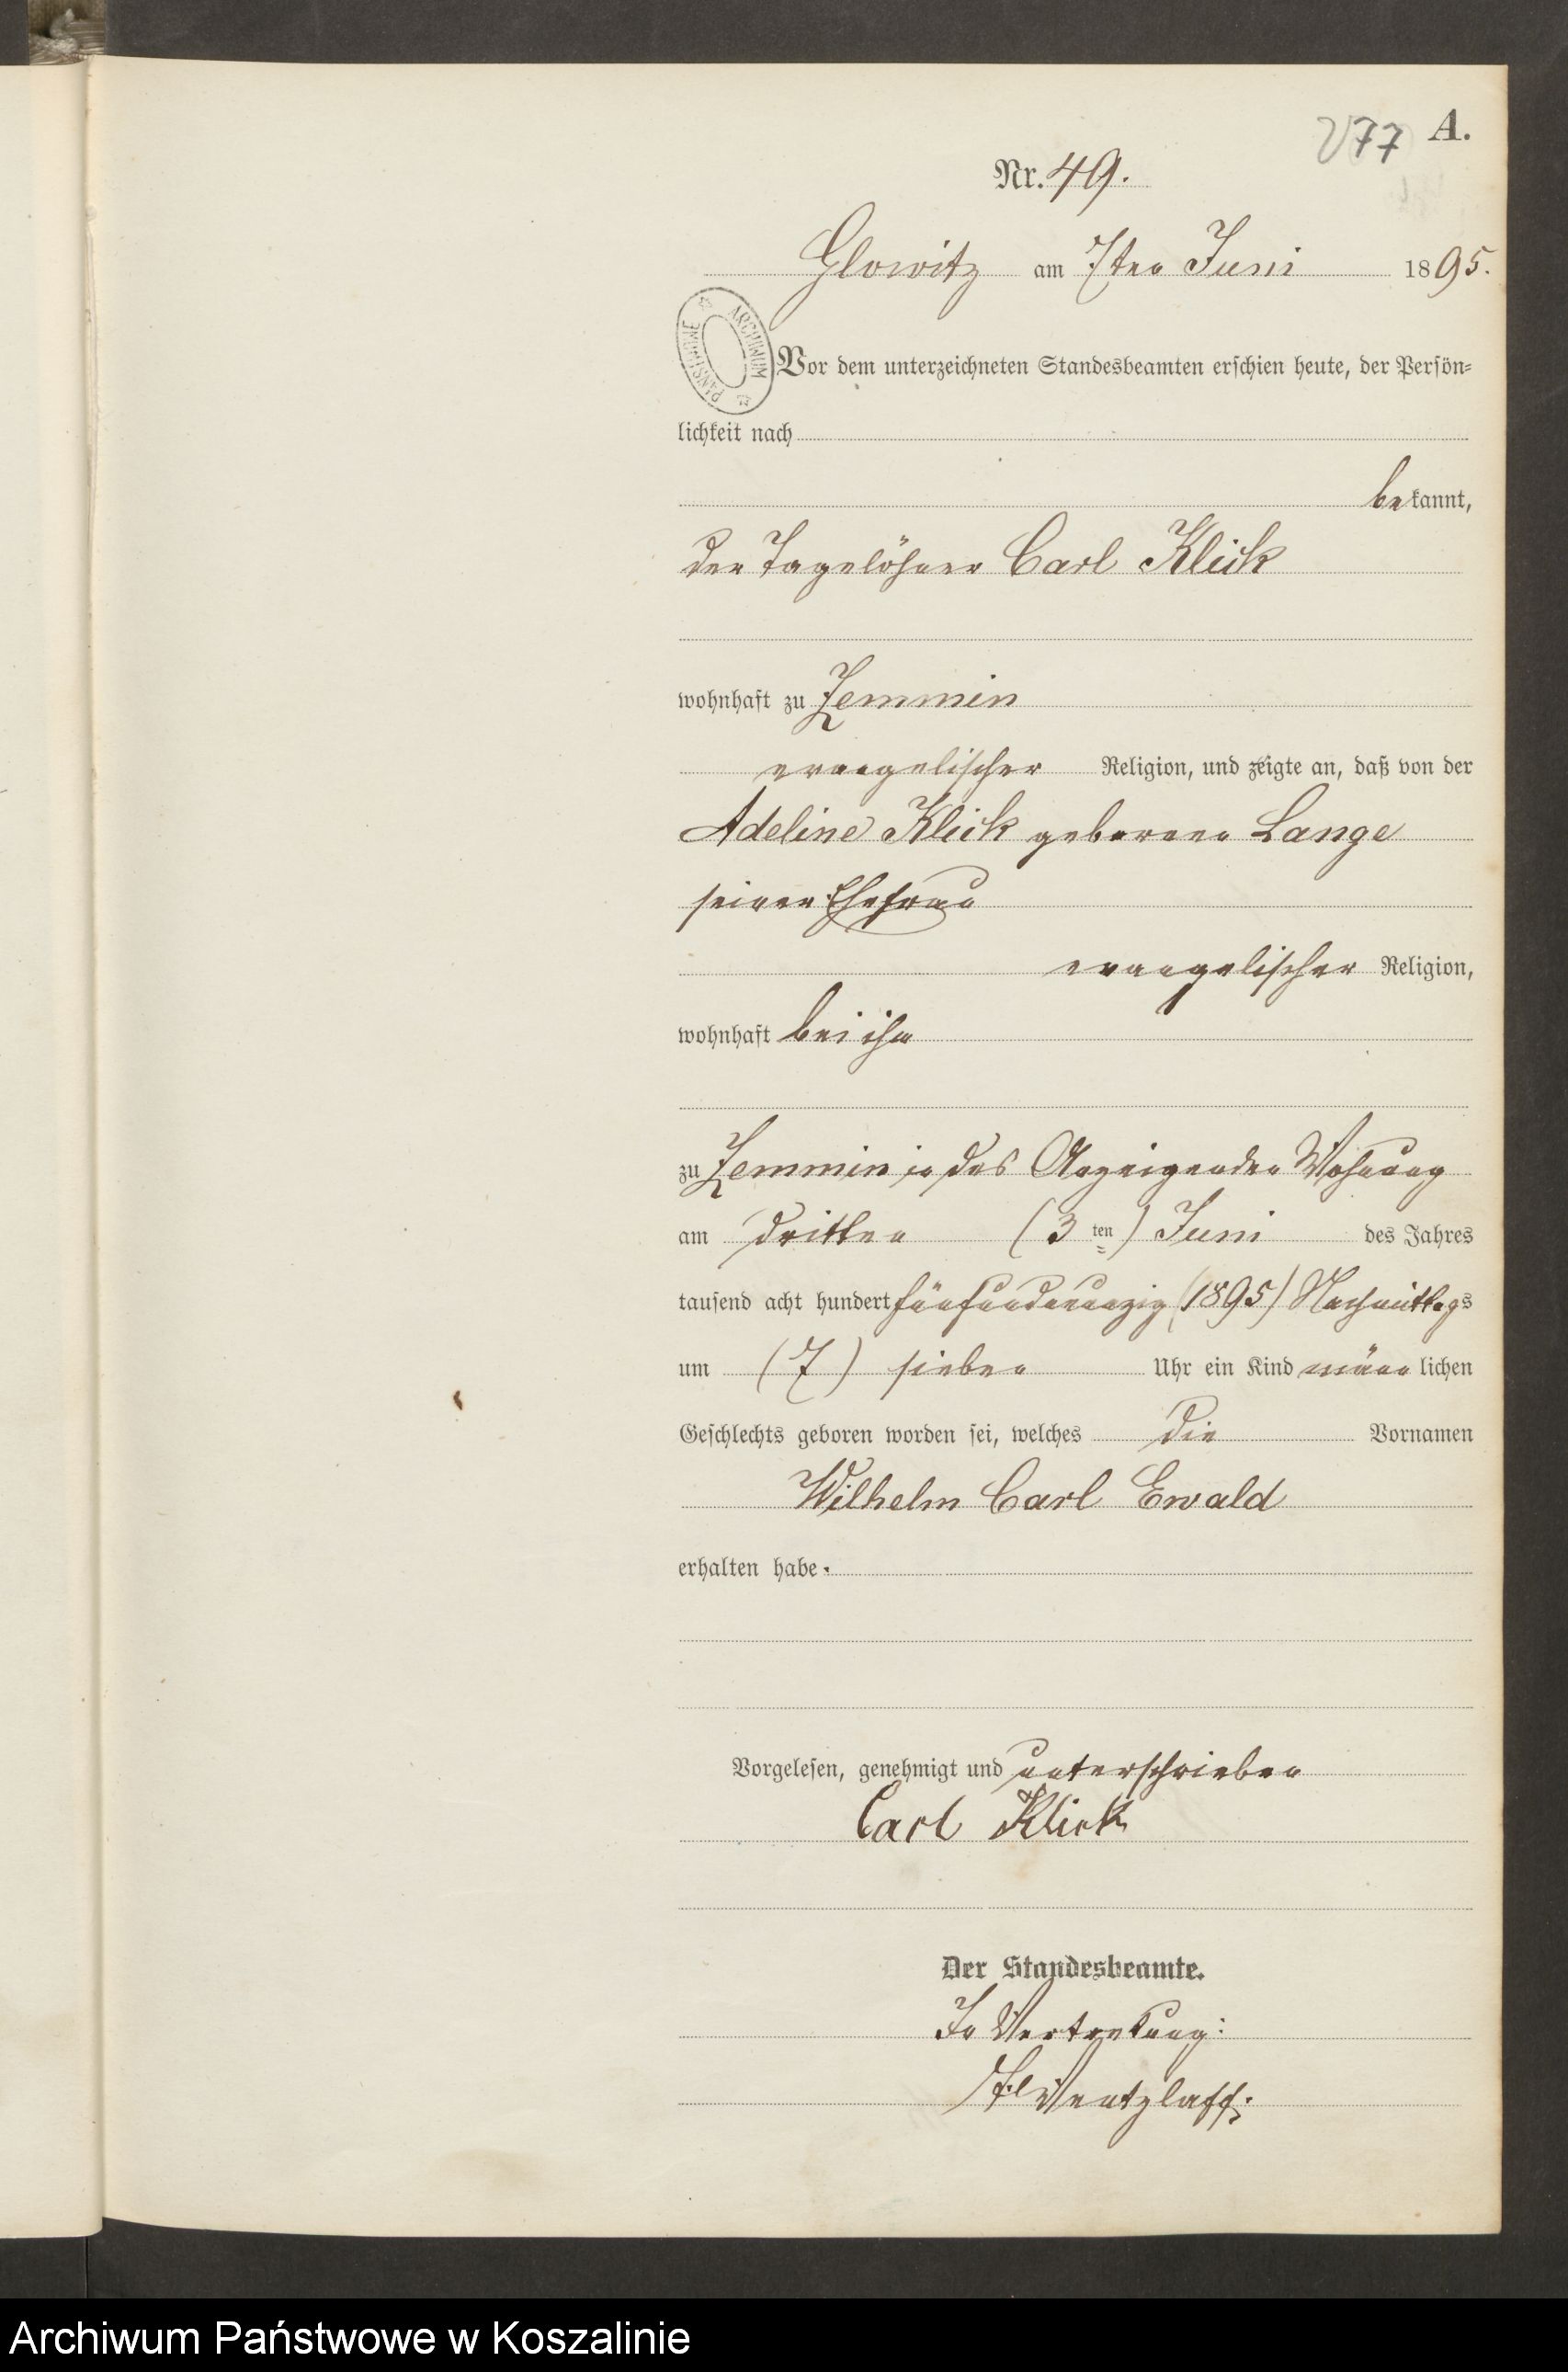 277 A.
Nr. 49.
Glowitz am 7ten Juni 1895.
ARCHIWUM PAŃSTWOWE
Vor dem unterzeichneten Standesbeamten erschien heute, der Persön-
lichkeit nach
bekannt,
der Tagelöhner Carl Klick
wohnhaft zu Zemmin
evangelischer Religion, und zeigte an, daß von der
Adeline Klick geborene Lange
seiner Ehefrau
evangelischer Religion,
wohnhaft bei ihm
zu Zemmin in des Anzeigenden Wohnung
am dritten (3 ten) Juni des Jahres
tausend acht hundert fünfundneunzig (1895) Nachmittags
um (7) sieben Uhr ein Kind männlichen
Geschlechts geboren worden sei, welches die Vornamen
Wilhelm Carl Ewald
erhalten habe.
Vorgelesen, genehmigt und unterschrieben
Carl Klick
Der Standesbeamte.
In Vertretung:
Wentzlaff.
Archiwum Państwowe w Koszalinie